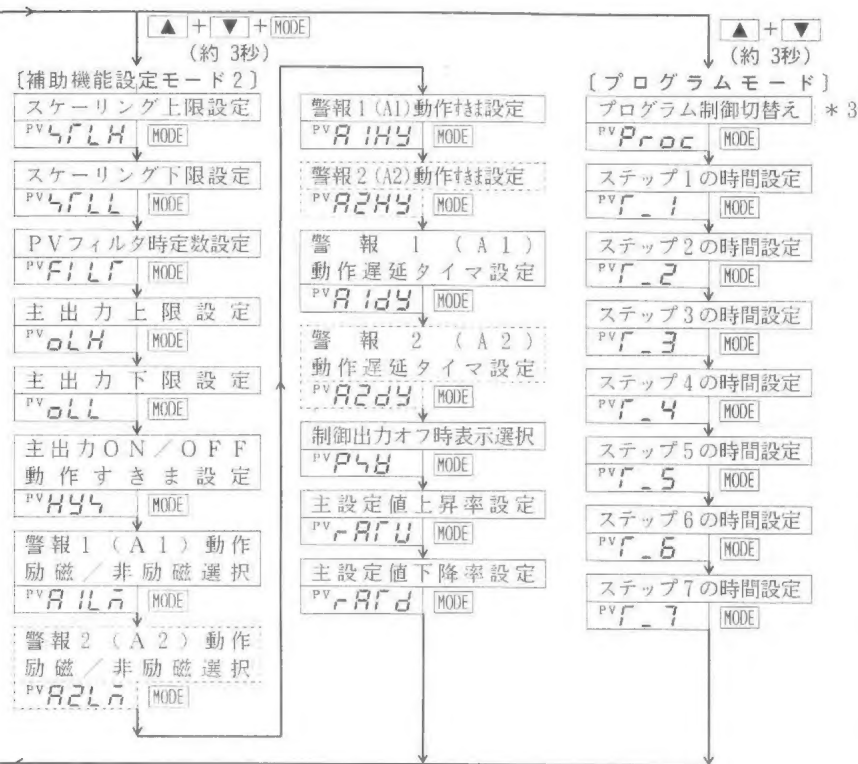 ▲ + ▼ + MODE
(約 3秒)
〔補助機能設定モード2〕
スケーリング上限設定
PV ㄣΓLH MODE
スケーリング下限設定
PV ㄣΓLL MODE
PVフィルタ時定数設定
PV FILΓ MODE
主出力上限設定
PV oLH MODE
主出力下限設定
PV oLL MODE
主出力ON/OFF
動作すきま設定
PV HYㄣ MODE
警報1(A1)動作
励磁/非励磁選択
PV A1Lm MODE
警報2(A2)動作
励磁/非励磁選択
PV A2Lm MODE
警報1(A1)動作すきま設定
PV A1HY MODE
警報2(A2)動作すきま設定
PV A2HY MODE
警報1(A1)
動作遅延タイマ設定
PV A1dY MODE
警報2(A2)
動作遅延タイマ設定
PV A2dY MODE
制御出力オフ時表示選択
PV MODE
主設定値上昇率設定
PV rAΓU MODE
主設定値下降率設定
PV rAΓd MODE
▲ + ▼
(約 3秒)
〔プログラムモード〕
プログラム制御切替え *3
PV Proc MODE
ステップ1の時間設定
PV Γ_1 MODE
ステップ2の時間設定
PV Γ_2 MODE
ステップ3の時間設定
PV Γ_3 MODE
ステップ4の時間設定
PV Γ_4 MODE
ステップ5の時間設定
PV Γ_5 MODE
ステップ6の時間設定
PV Γ_6 MODE
ステップ7の時間設定
PV Γ_7 MODE